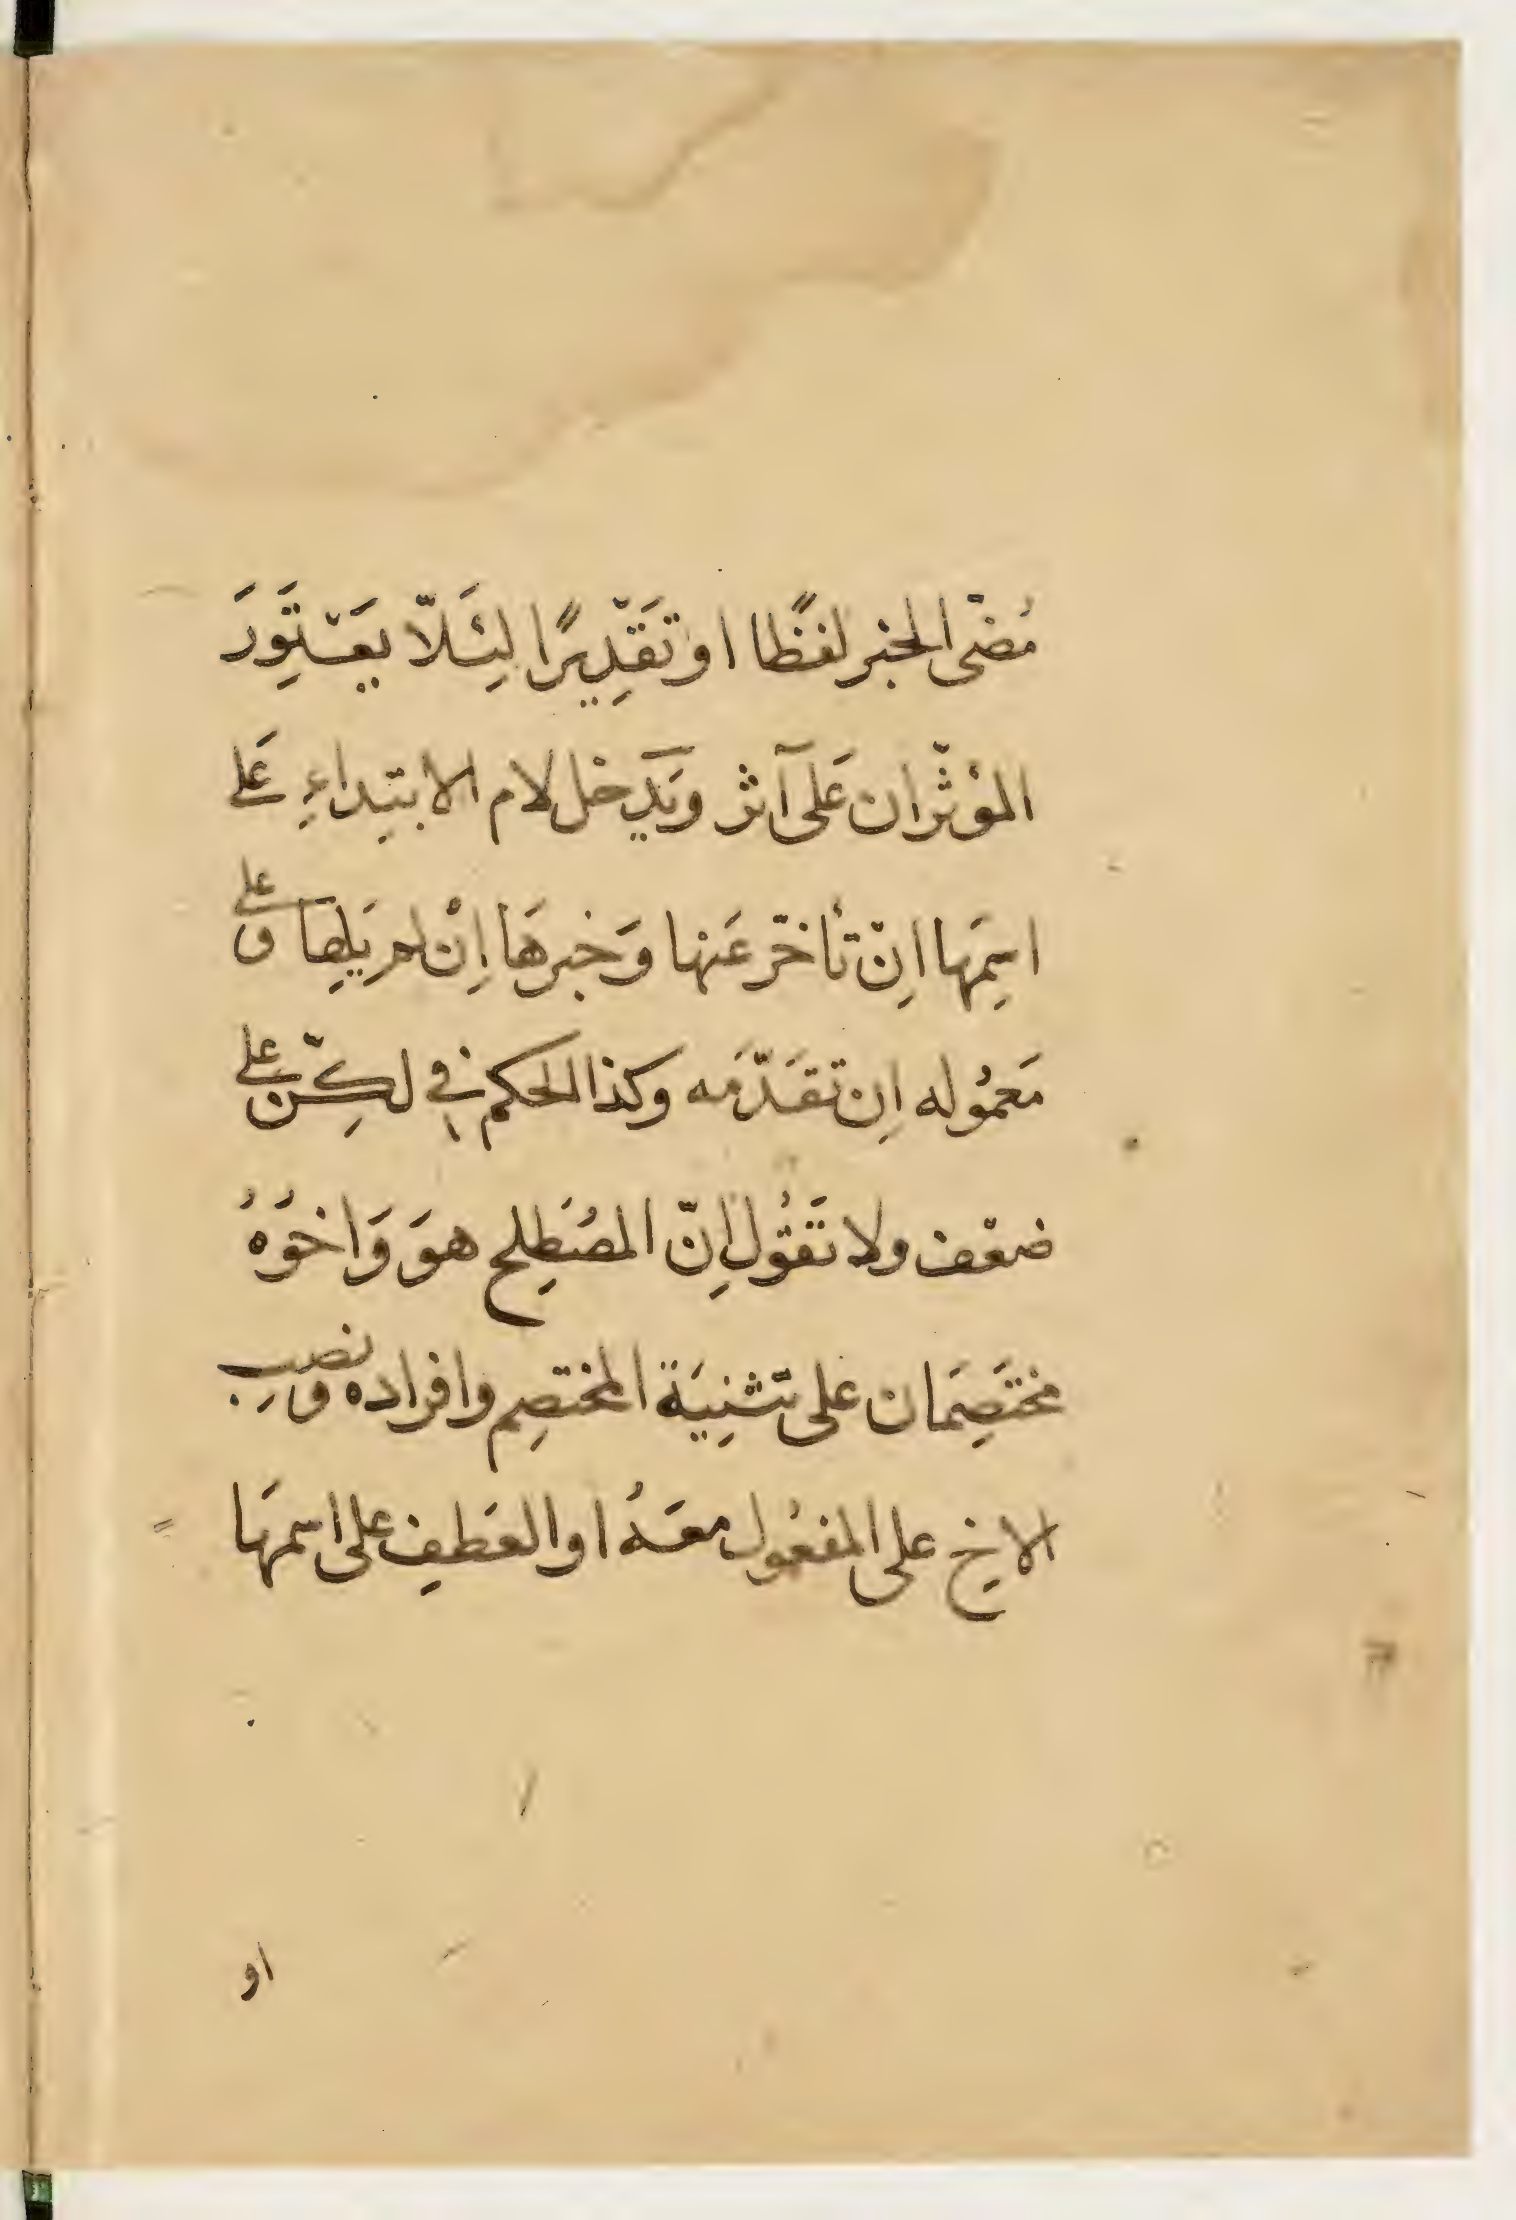 مُضْى الخبر لفظًا او تَقْدِيرًا لِئَلّا يَعْتَوِرَ
المؤثّران عَلى آثر ويَدخل لام الابتِداءِ عَلى
اسمِها اِنْ تأخّر عَنها وَخبرهَا اِنْ لم يَلِها وعلى
مَعمُوله اِن تقَدّمَه وكذا الحكم في لكِنّ على
ضعْف ولا تَقُول اِنّ المصُطَلِح هوَ وَاخوُهُ
مختَصِمَان على تثنِيَة المختصِم وافراده ونصب
الاخِ على المفعُول معَهُ او العَطِف على اسمهَا
او